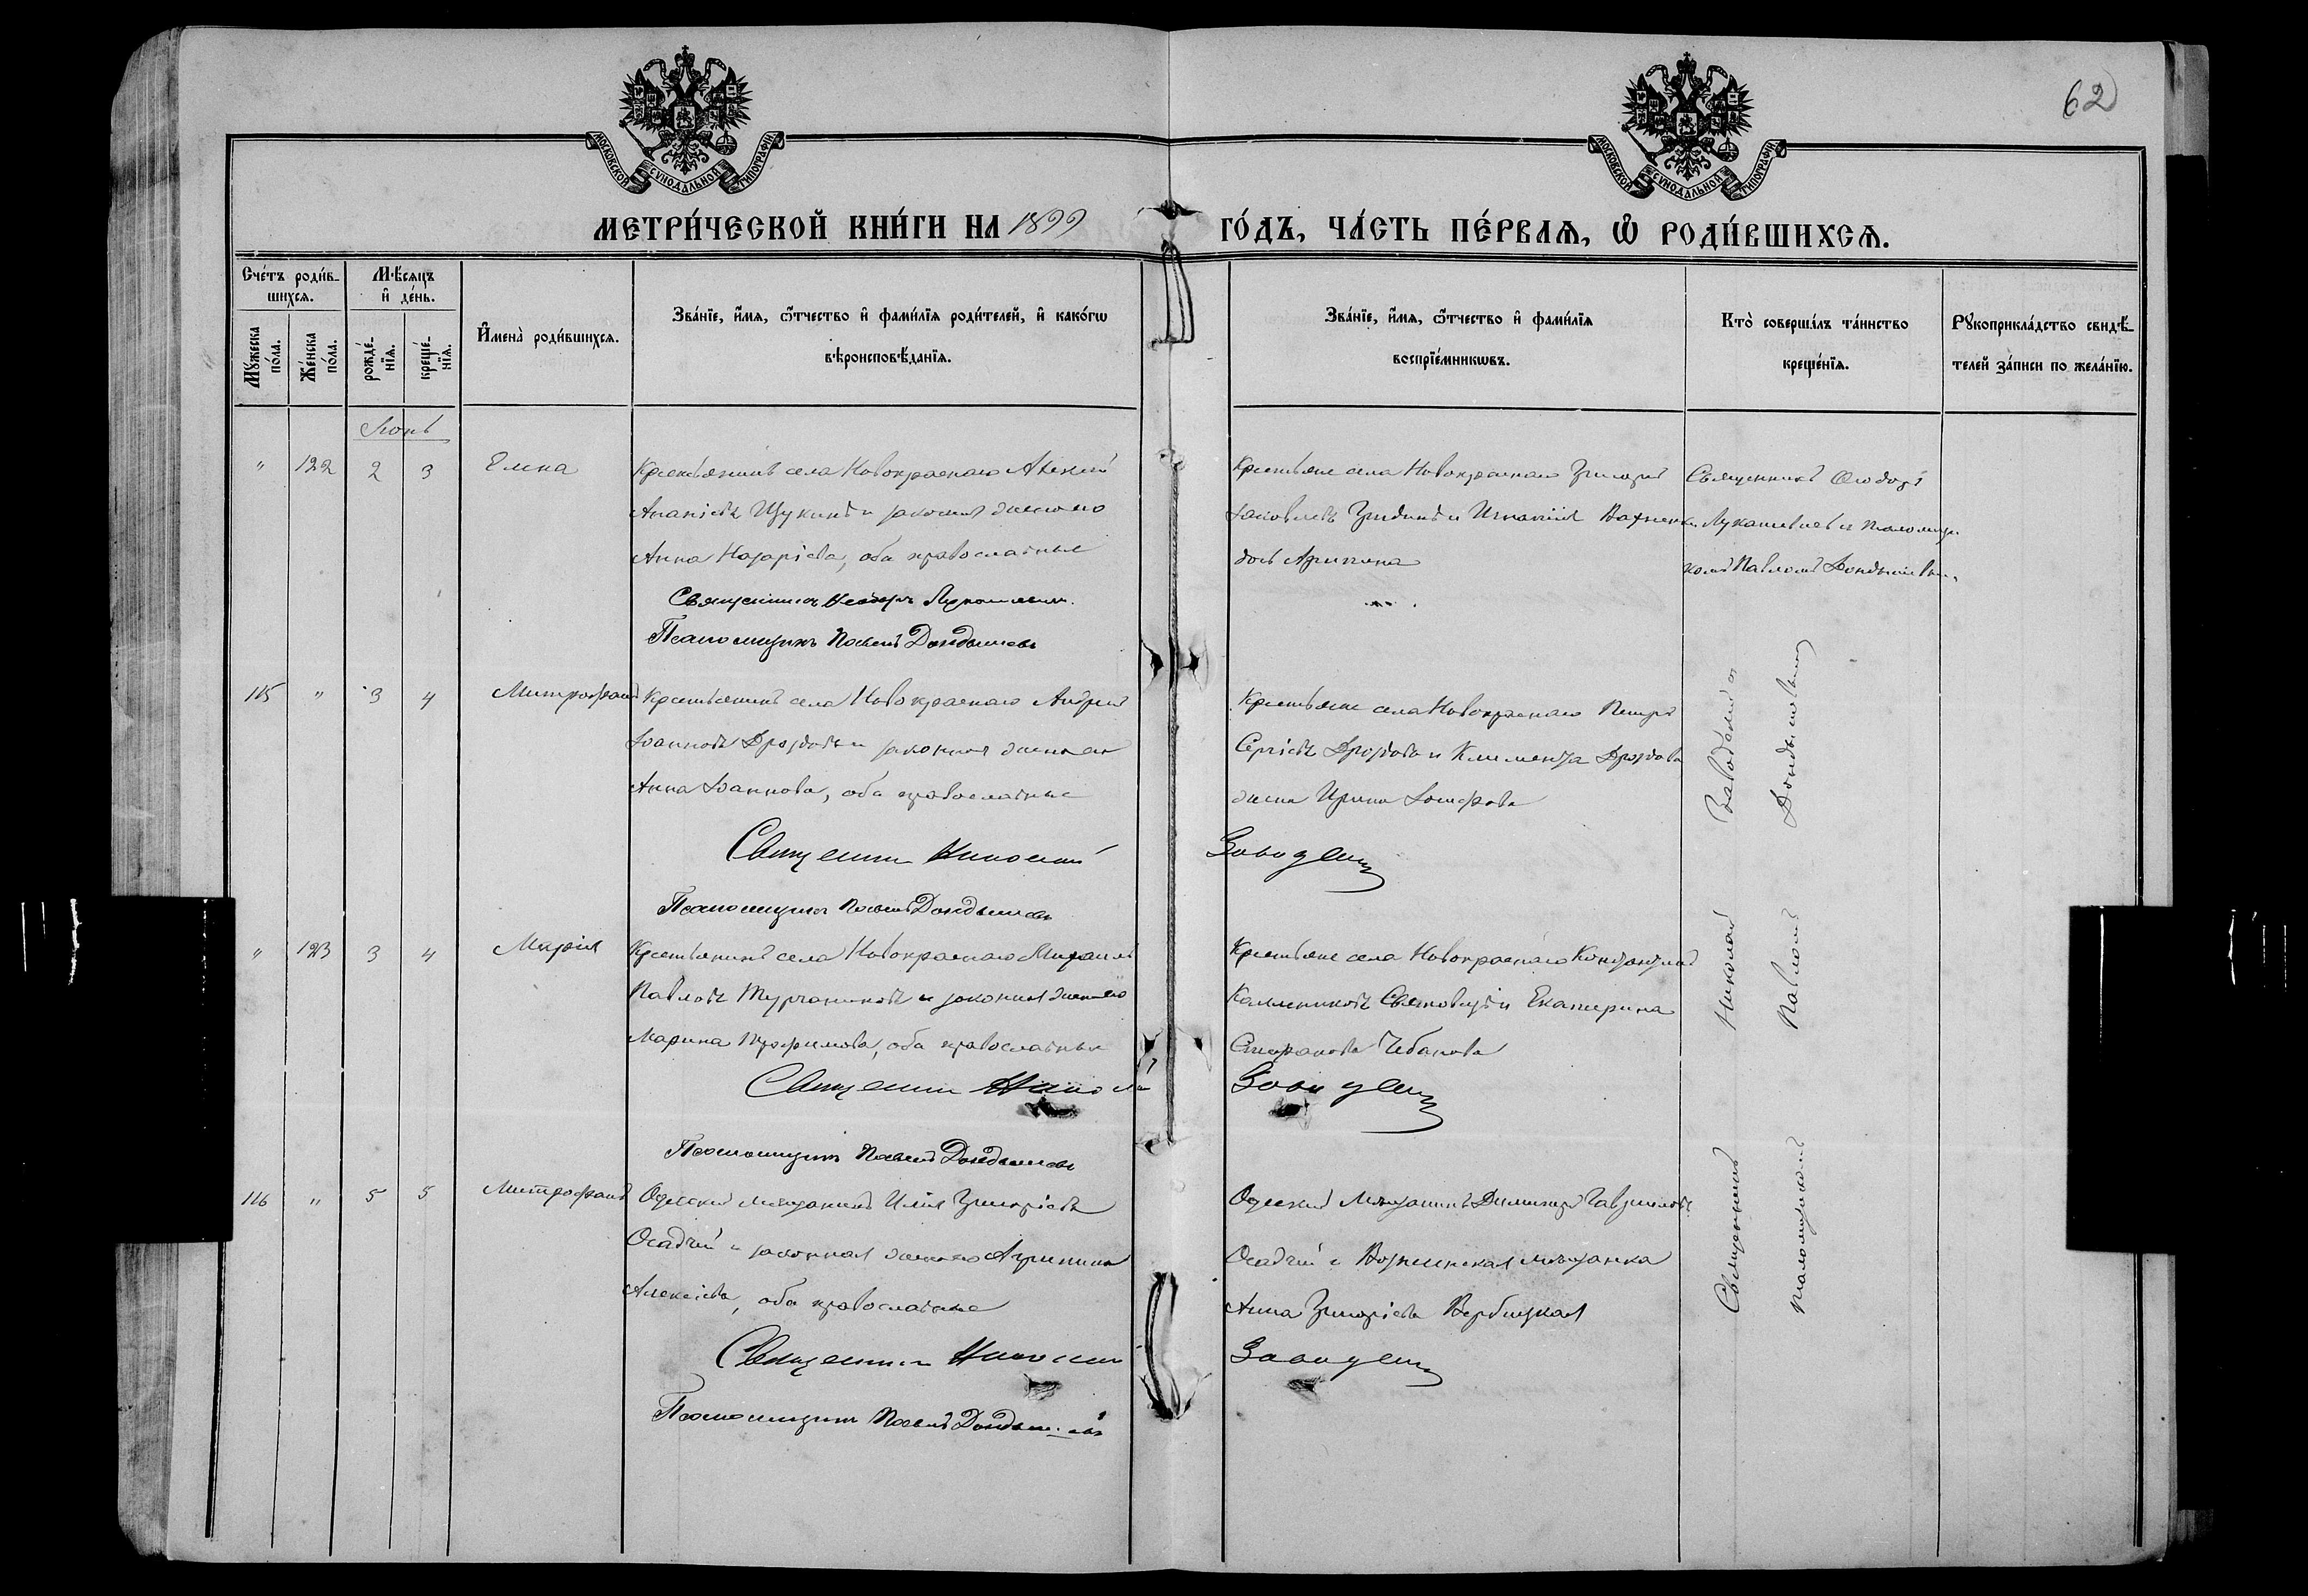 62
МОСКОВСКОЙ СѴНОДАЛЬНОЙ ТИПОГРАФІИ
МОСКОВСКОЙ СѴНОДАЛЬНОЙ ТИПОГРАФІИ
МЕТРИ́ЧЕСКОЙ КНИ́ГИ НА 1899 ГО́ДЪ, ЧА́СТЬ ПЕ́РВАѦ, Ѡ РОДИ́ВШИХСѦ.
Сче́тъ роди́в-
шихсѧ.
Мѣ́сѧцъ
и҆ де́нь.
Мꙋ́жеска
по́ла.
Же́нска
по́ла.
рожде́-
нїѧ.
креще́-
нїѧ.
И҆мена̀ роди́вшихсѧ.
Зва́нїе, и҆́мѧ, ѻ҆́тчество и҆ фами́лїѧ роди́телей, и҆ како́гѡ
вѣроисповѣ́данїѧ.
Зва́нїе, и҆́мѧ, ѻ҆́тчество и҆ фами́лїѧ
воспрїе́мникѡвъ.
Кто̀ соверша́лъ та́инство
креще́нїѧ.
Рꙋкоприкла́дство свидѣ́-
телей за́писи по жела́нїю.
Іюнь
" 122 2 3 Елена
Крестьянинъ села Новокраснаго Алексій
Ананіевъ Щукинъ и законная жена его
Анна Назаріева, оба православные
Священникъ Ѳеодоръ Лукашевичъ
Псаломщикъ Павелъ Дондышевъ
Крестьяне села Новокраснаго Григорій
Іаковлевъ и Игнатія
дочь Агрипина
Священникъ Ѳеодоръ
Лукашевичъ и псаломщи-
комъ Павломъ
115 " 3 4 Митрофанъ
Крестьянинъ села Новокраснаго Андрей
Іоанновъ Дроздовъ и законная жена его
Анна Іоаннова, оба православные
Священникъ Николай
Псаломщикъ Павелъ Дондышевъ
Крестьяне села Новокраснаго Петръ
Сергіевъ Дроздовъ и Климента Дроздова
жена Ирина Іосифова
" 123 3 4 Марія
Крестьянинъ села Новокраснаго Михаилъ
Павловъ Турчаниновъ и законная жена его
Марина Трофимова, оба православные
Священникъ Николай
Псаломщикъ Павелъ Дондышевъ
Крестьяне села Новокраснаго
Каллиниковъ и Екатерина
Стефанова Чебанова
116 " 5 5 Митрофанъ
Одесскій мѣщанинъ Илія Григоріевъ
Осадчій и законная жена его Агрипина
Алексіева, оба православные
Священникъ Николай
Псаломщикъ Павелъ Дондышевъ
Одесскій мѣщанинъ Димитрій Гавріиловъ
Осадчій и Вознесенская мѣщанка
Анна Григоріева Вербицкая
Священникъ Николай
псаломщикомъ Павломъ